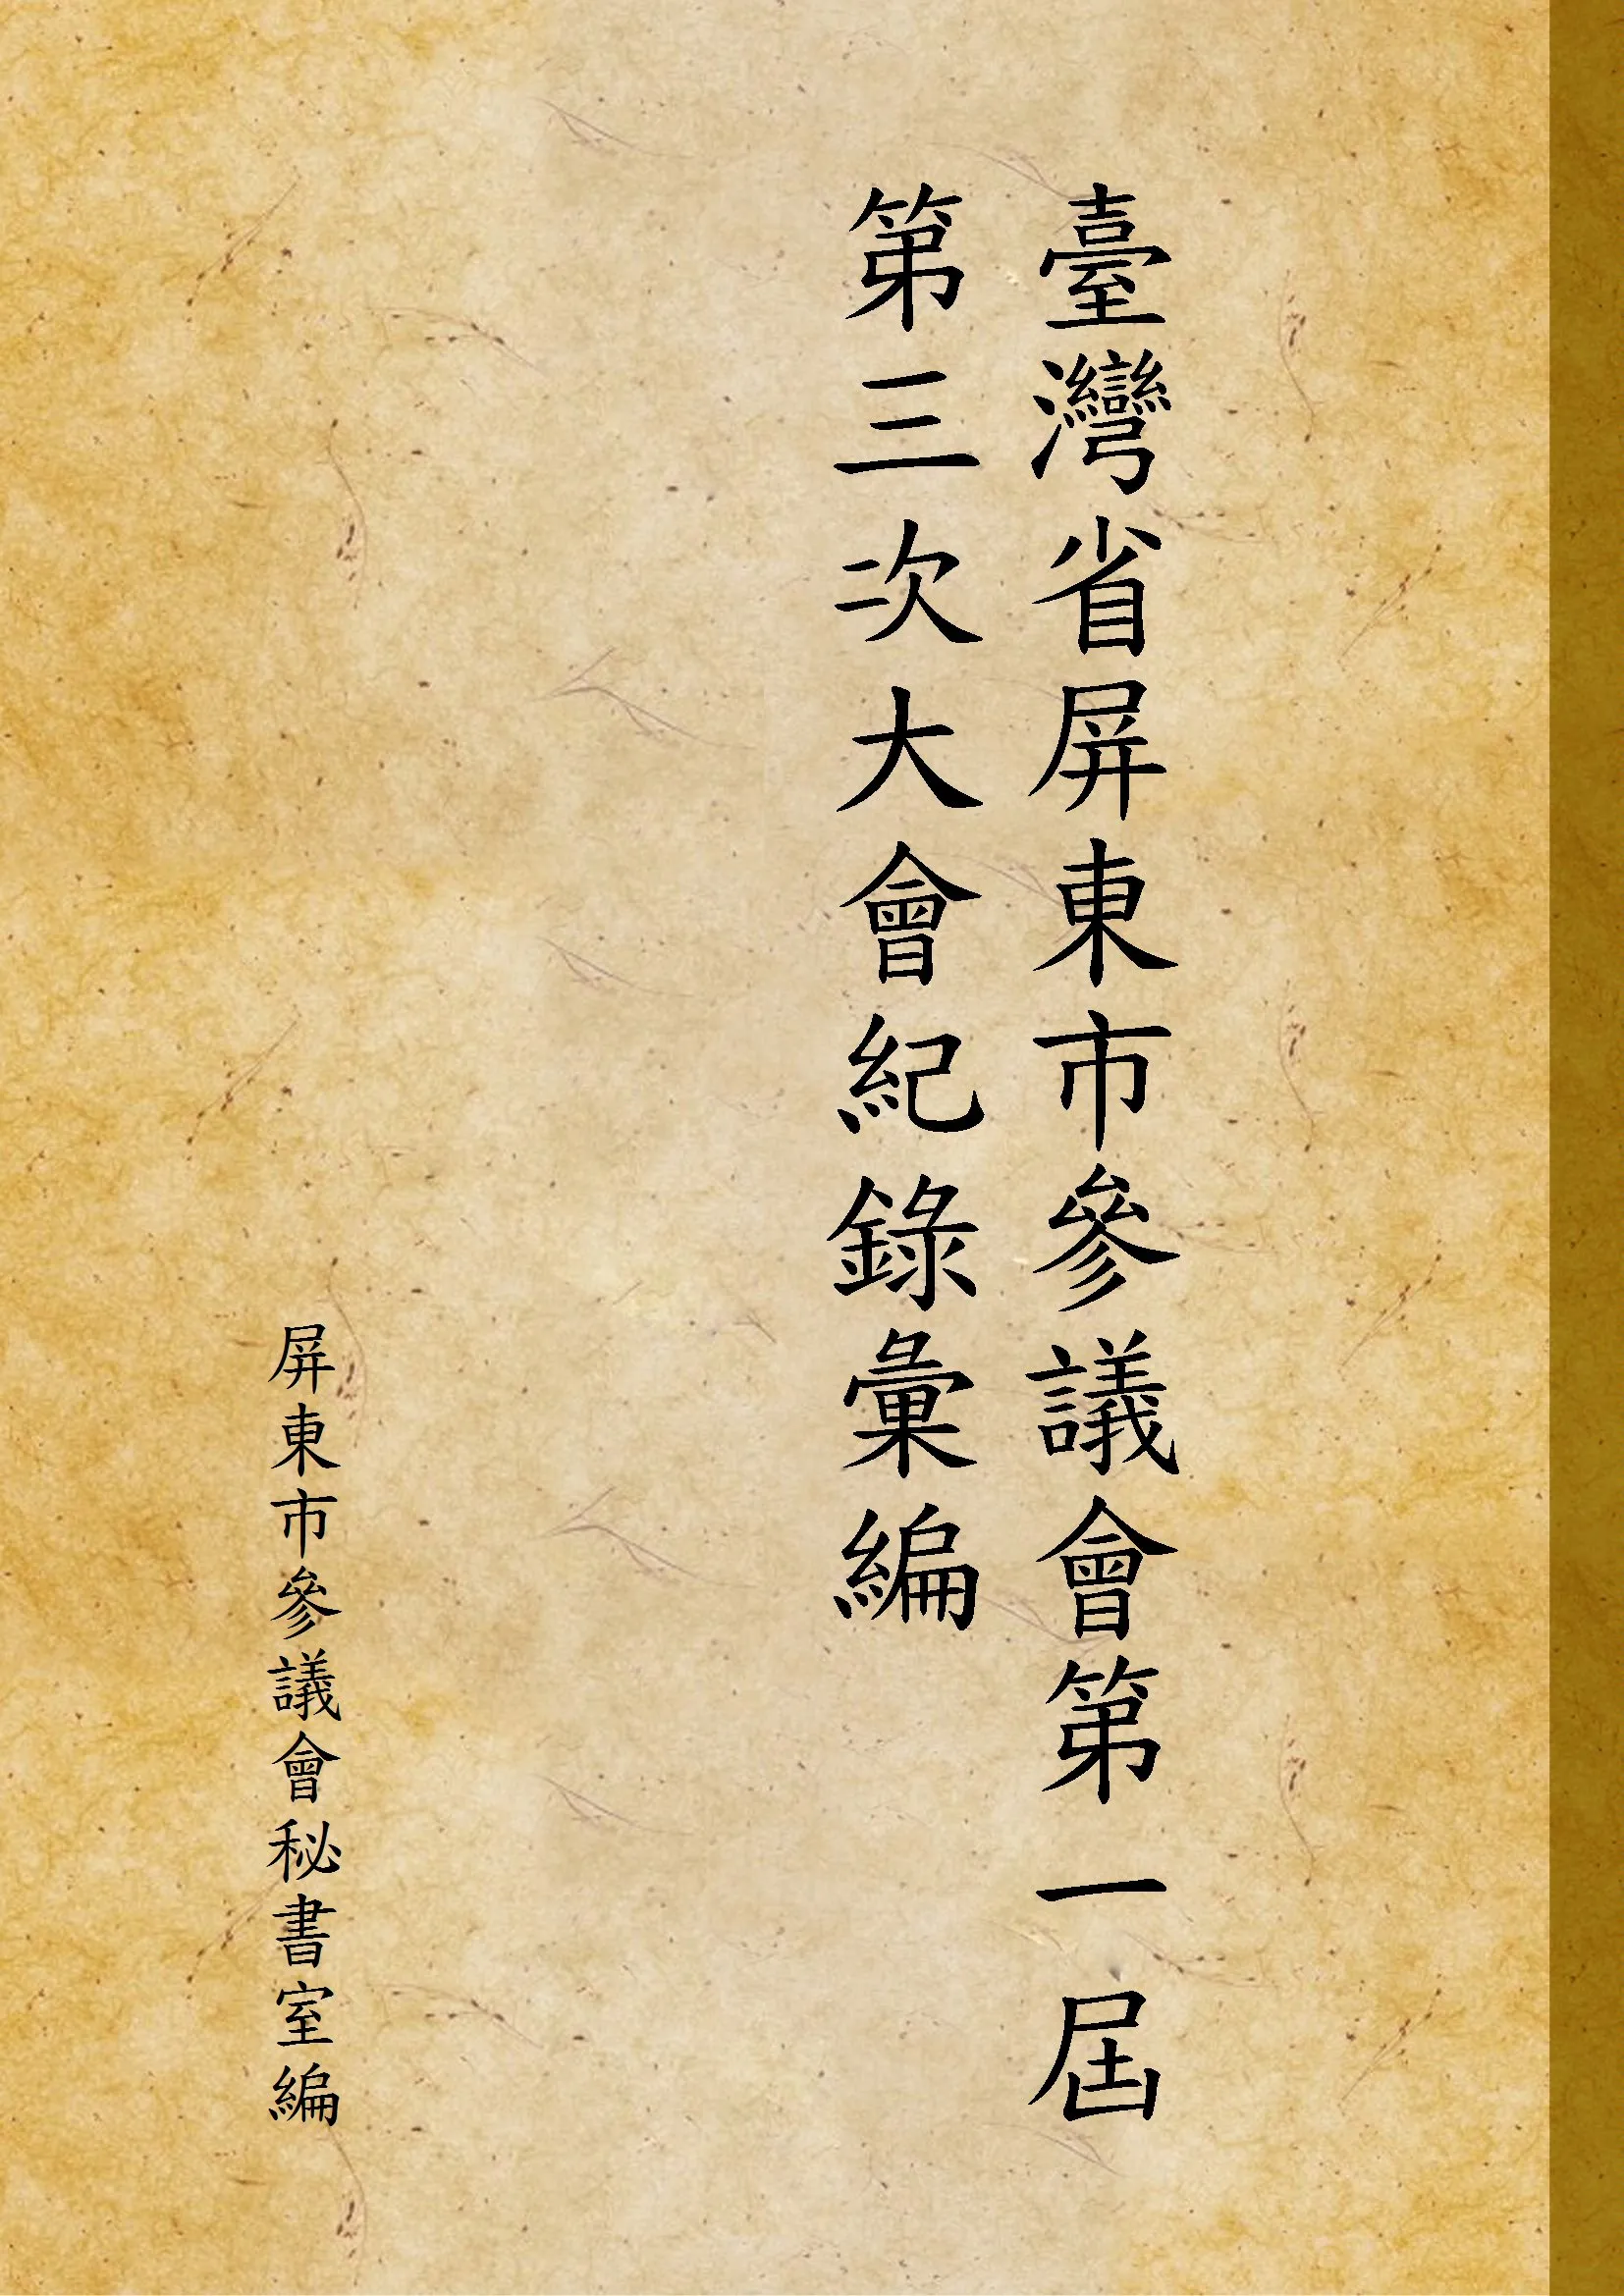 臺灣省屏東市參議會第一屆
第三次大會紀錄彙編
屏東市參議會秘書室編